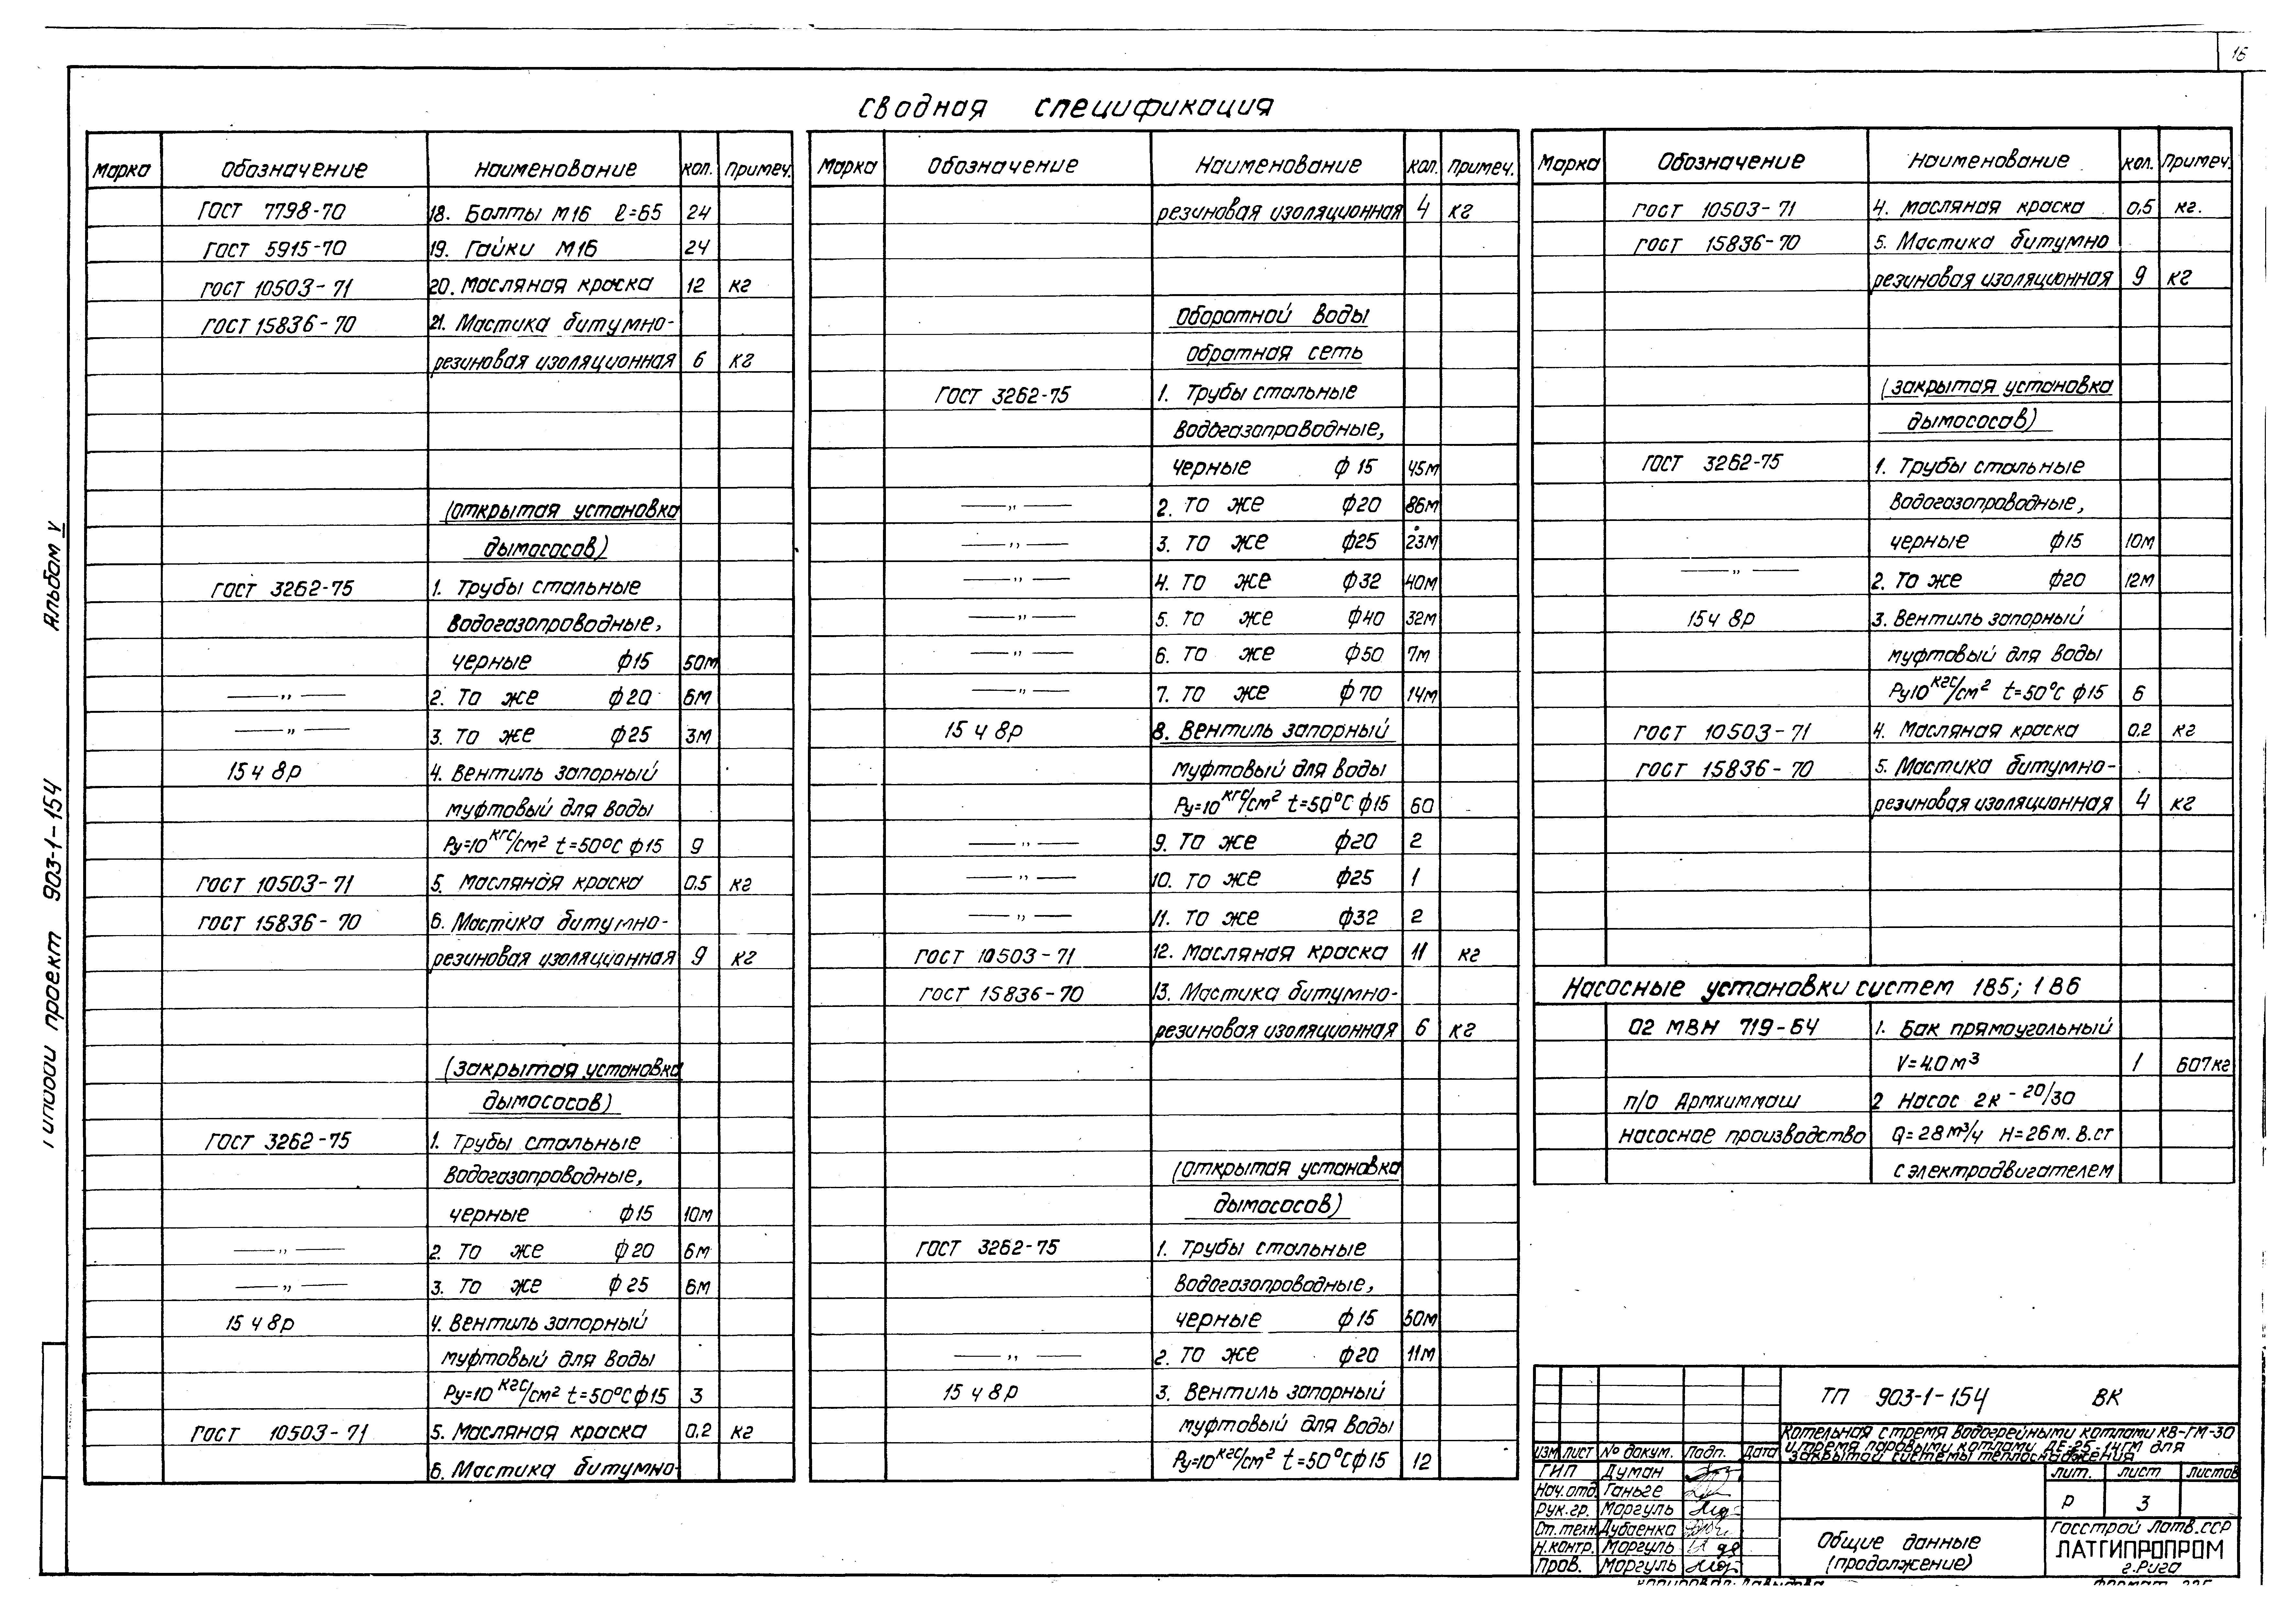 16
Сводная спецификация
Марка Обозначение Наименование кол. Примеч.
ГОСТ 7798-70 18. Болты М16 ℓ=65 24
ГОСТ 5915-70 19. Гайки М16 24
ГОСТ 10503-71 20. Масляная краска 12 кг
ГОСТ 15836-70 21. Мастика битумно-
резиновая изоляционная 6 кг
(открытая установка
дымососов)
ГОСТ 3262-75 1. Трубы стальные
водогазопроводные,
черные ф15 50м
—〃— 2. То же ф20 6м
—〃— 3. То же ф25 3м
15ч 8р 4. Вентиль запорный
муфтовый для воды
Ру=10 кгс/см² t=50°С ф15 9
ГОСТ 10503-71 5. Масляная краска 0,5 кг
ГОСТ 15836-70 6. Мастика битумно-
резиновая изоляционная 9 кг
(закрытая установка
дымососов)
ГОСТ 3262-75 1. Трубы стальные
водогазопроводные,
черные ф15 10м
—〃— 2. То же ф20 6м
—〃— 3. То же ф25 6м
15ч 8р 4. Вентиль запорный
муфтовый для воды
Ру=10 кгс/см² t=50°С ф15 3
ГОСТ 10503-71 5. Масляная краска 0,2 кг
6. Мастика битумно-
Марка Обозначение Наименование кол. Примеч.
резиновая изоляционная 4 кг
Оборотной воды
обратная сеть
ГОСТ 3262-75 1. Трубы стальные
водогазопроводные,
черные ф15 45м
—〃— 2. То же ф20 86м
—〃— 3. То же ф25 23м
—〃— 4. То же ф32 40м
—〃— 5. То же ф40 32м
—〃— 6. То же ф50 7м
—〃— 7. То же ф70 14м
15ч 8р 8. Вентиль запорный
муфтовый для воды
Ру=10 кгс/см² t=50°С ф15 60
—〃— 9. То же ф20 2
—〃— 10. То же ф25 1
—〃— 11. То же ф32 2
ГОСТ 10503-71 12. Масляная краска 11 кг
ГОСТ 15836-70 13. Мастика битумно-
резиновая изоляционная 6 кг
(открытая установка
дымососов)
ГОСТ 3262-75 1. Трубы стальные
водогазопроводные,
черные ф15 50м
—〃— 2. То же ф20 11м
15ч 8р 3. Вентиль запорный
муфтовый для воды
Ру=10 кгс/см² t=50°С ф15 12
Марка Обозначение Наименование кол. Примеч.
ГОСТ 10503-71 4. Масляная краска 0,5 кг.
ГОСТ 15836-70 5. Мастика битумно
резиновая изоляционная 9 кг
(закрытая установка
дымососов)
ГОСТ 3262-75 1. Трубы стальные
водогазопроводные,
черные ф15 10м
—〃— 2. То же ф20 12м
15ч 8р 3. Вентиль запорный
муфтовый для воды
Ру10 кгс/см² t=50°С ф15 6
ГОСТ 10503-71 4. Масляная краска 0,2 кг
ГОСТ 15836-70 5. Мастика битумно-
резиновая изоляционная 4 кг
Насосные установки систем 1В5; 1В6
02 МВН 719-64 1. Бак прямоугольный
V=4.0м³ 1 607кг
п/о Армхиммаш 2 Насос 2к-20/30
насосное производство Q=28м³/ч Н=26м.в.ст
с электродвигателем
Альбом V
Типовой проект 903-1-154
ТП 903-1-154 ВК
Котельная с тремя водогрейными котлами КВ-ГМ-30
и тремя паровыми котлами ДЕ-25-14ГМ для
закрытой системы теплоснабжения
Изм Лист № докум. Подп. Дата
ГИП Думан
Нач.отд. Ганьге
Рук.гр. Моргуль
Ст.техн. Дубаенка
Н.контр. Моргуль
Пров. Моргуль
лит. лист листов
Р 3
Общие данные
(продолжение)
Госстрой Латв.ССР
ЛАТГИПРОПРОМ
г.Рига